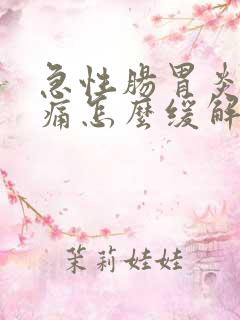 急性腸胃炎
痛怎麼緩解
茉莉娃娃